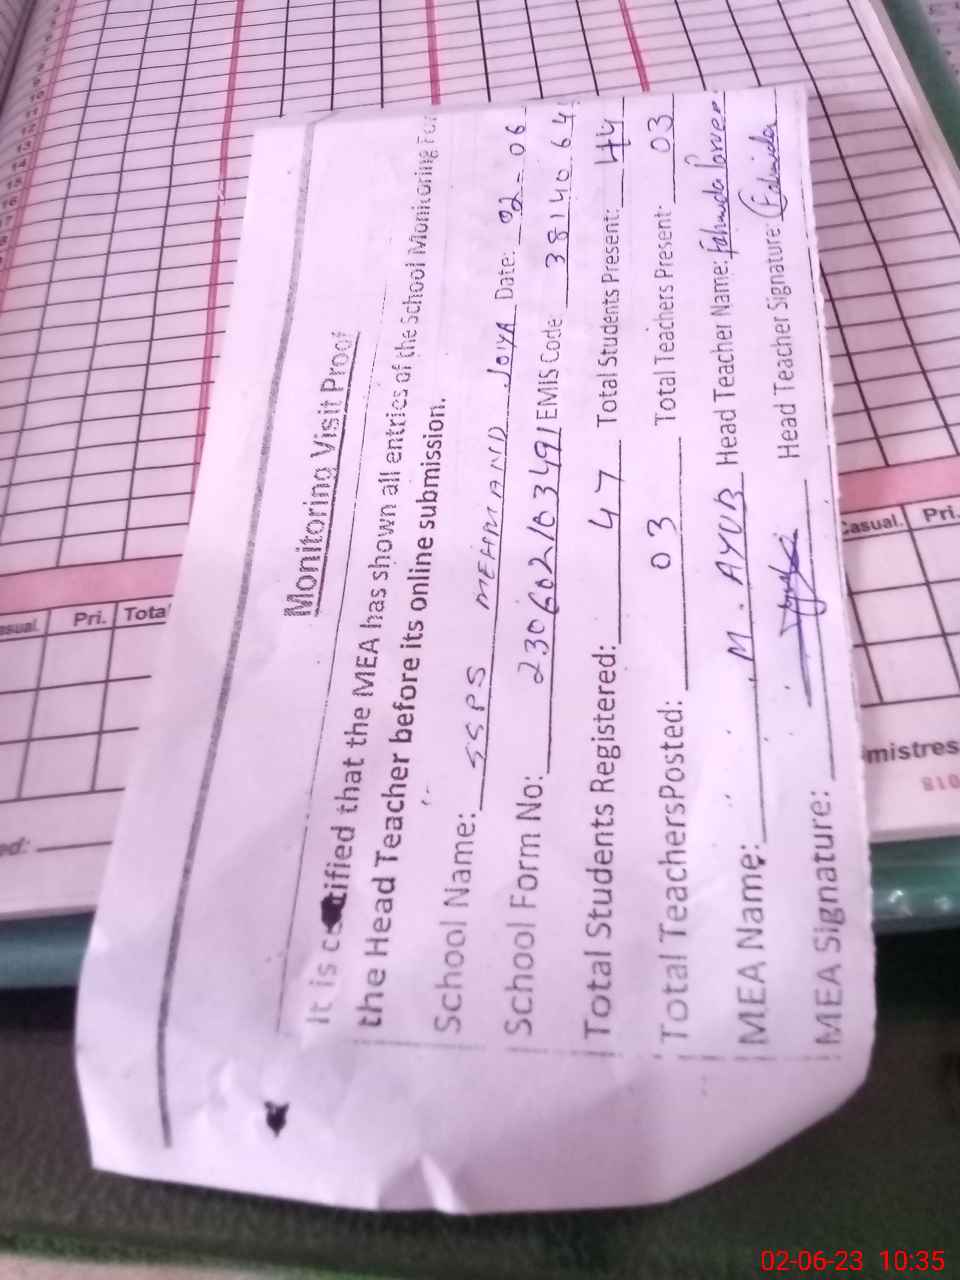 Monitoring Visit Proof
It is certified that the MEA has shown all entries of the School Monitoring
the Head Teacher before its online submission.
School Name: SSPS MEHMAND JOIYA Date: 02-06
School Form No: 230602103491 EMIS Code: 38140064
Total Students Registered: 47 Total Students Present: 44
Total TeachersPosted: 03 Total Teachers Present: 03
MEA Name: M. AYUB Head Teacher Name: Fahmida Parveen
MEA Signature: Head Teacher Signature: Fahmida
asual. Pri. Total
Casual. Pri.
mistres
ed:
02-06-23 10:35